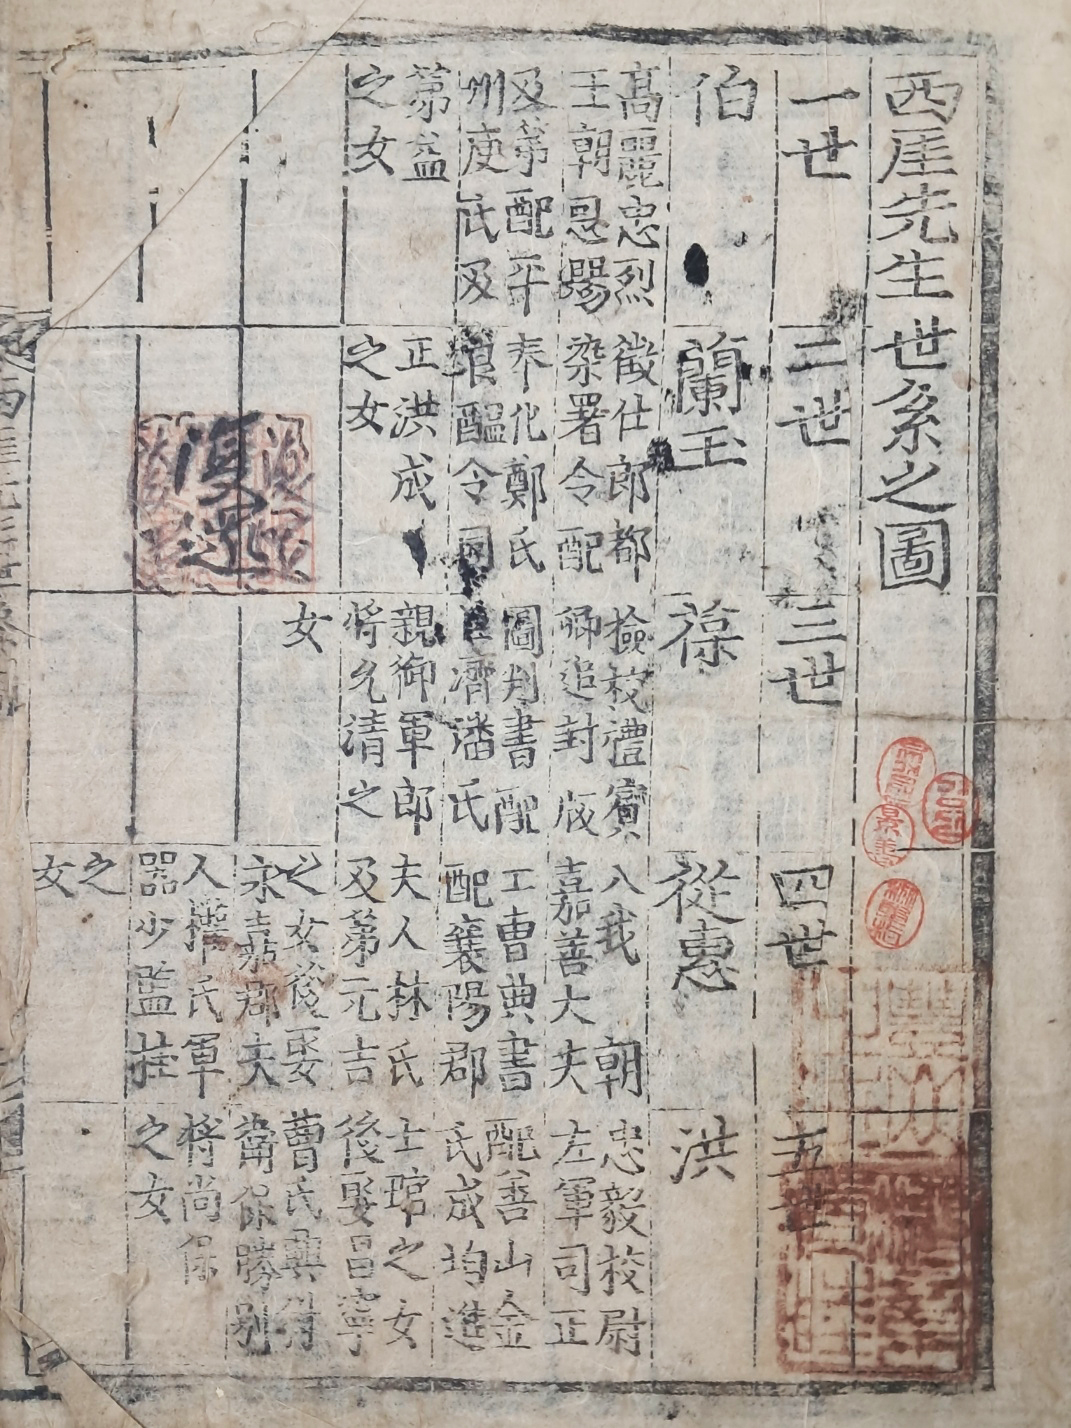 西厓先生世系之圖
一世
伯
高麗忠烈
王朝恩賜
及第配平
州庾氏及
第益
之女
二世
蘭玉
徵仕郎都
染署令配
奉化鄭氏
醞令同
正洪成
之女
三世
葆
檢校禮賓
卿追封版
圖判書配
濟潘氏
親御軍郎
將允清之
女
四世
從惠
入我 朝
嘉善大夫
工曹典書
配襄陽郡
夫人林氏
及第元吉
之女後娶
永嘉郡夫
人權氏軍
器少監
之
女
五世
洪
忠毅校尉
左軍司正
配善山金
氏成均進
士琯之女
後娶昌寧
曹氏興
尚保勝別
將尚保
之女